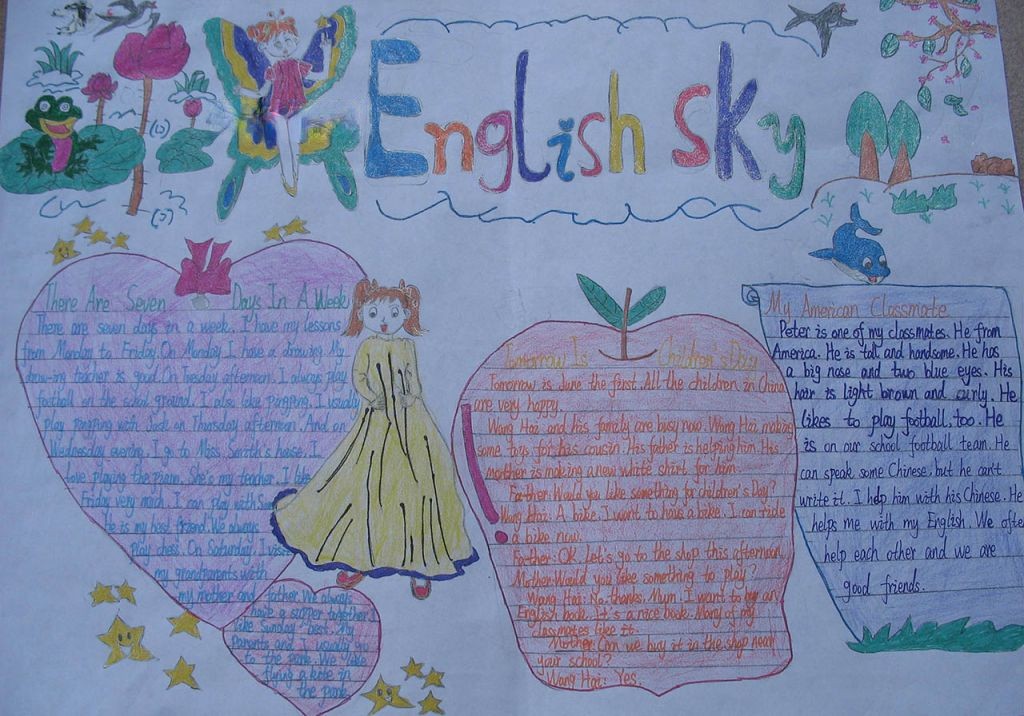 English Sky
There Are Seven Days In A Week
There are seven days in a week. I have my lessons
from Monday to Friday. On Monday I have a drawing. My
drawing teacher is good. On Tuesday afternoon. I always play
football on the school ground. I also like pingping. I usually
play pingping with Jack on Thursday afternoon. And on
Wednesday evening. I go to Miss Smith's house. I
love playing the piano. She's my teacher. I like
Friday very much. I can play with Sam
he is my best friend. We always
play chess. On Saturday. I visit
my grandparents with
my mother and father. We always
have a supper together. I
like Sunday best. My
Parents and I usually go
to the park. We like
flying a kite in
the park.
Tomorrow Is Children's Day
Tomorrow is June the first. All the children in China
are very happy.
Wang Hai and his family are busy now. Wang Hai making
some toys for his cousin. His father is helping him. His
mother is making a new white shirt for him.
Father: Would you like something for children's Day?
Wang Hai: A bike. I want to have a bike. I can ride
a bike now.
Father: OK. Let's go to the shop this afternoon.
Mother: Would you like something to play?
Wang Hai: No. thanks. Mum. I want to buy an
English book. It's a nice book. Many of my
classmates like it.
Mother: Can we buy it in the shop near
your school?
Wang Hai: Yes.
My American Classmate
Peter is one of my classmates. He from
America. He is tall and handsome. He has
a big nose and two blue eyes. His
hair is light brown and curly. He
likes to play football, too. He
is on our school football team. He
can speak some Chinese. but he can't
write it. I help him with his Chinese. He
helps me with my English. We ofte
help each other and we are
good friends.